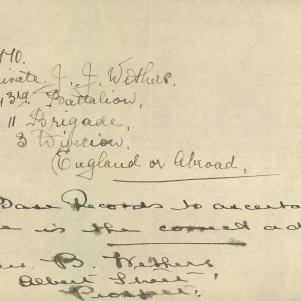 Private J. J. Wethers.
43rd Battalion,
11 Brigade,
3 Division.
(England or Abroad,
Base Records to ascerta
is the correct ad
B. Wethers
Albert Street,
Prospect.